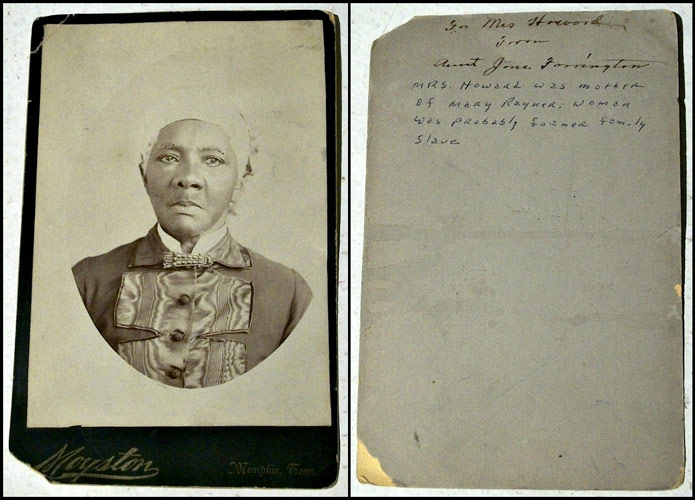 Moyston
Memphis, Tenn.
For Mrs Howard
From
Aunt Jane Torrington
MRS. Howard was mother
of Mary Rayner. Woman
was probably former family
slave